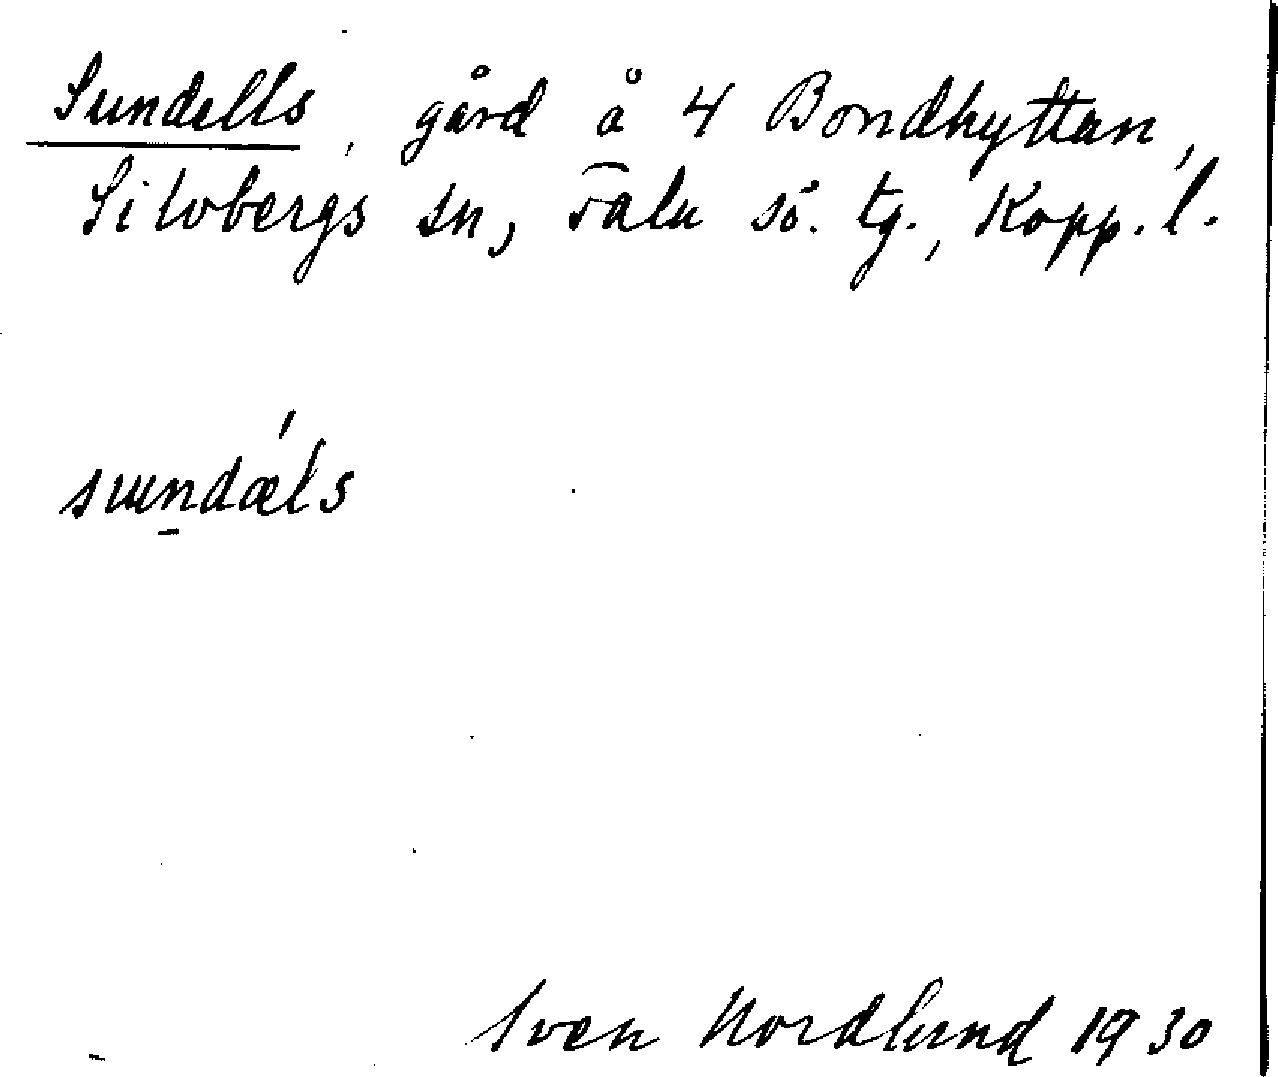 Sundells, gård å 4 Bondhyttan,
Silvbergs sn, Falu sö. tg., Kopp. l.
sundæ´ls
Sven Nordlund 1930